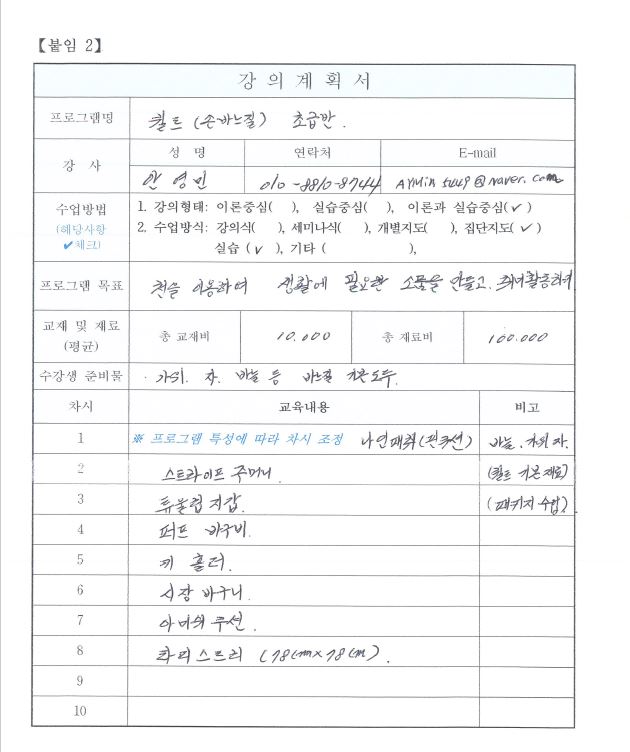 【붙임 2】
강 의 계 획 서
프로그램명 퀼트 (손바느질) 초급반.
강 사 성 명 연락처 E-mail
안 영 민 010-8810-8744 AYMin5449@naver.com
수업방법 1. 강의형태: 이론중심( ), 실습중심( ), 이론과 실습중심(✓)
(해당사항 2. 수업방식: 강의식( ), 세미나식( ), 개별지도( ), 집단지도(✓)
✔체크) 실습 (✓), 기타 ( ),
프로그램 목표 천을 이용하여 생활에 필요한 소품을 만들고,
교재 및 재료 (평균) 총 교재비 10.000 총 재료비 100.000
수강생 준비물 · 가위. 자. 바늘 등 바느질 기본도구.
차시 교육내용 비고
1 ※ 프로그램 특성에 따라 차시 조정 나인패취(핀쿠션) 바늘. 가위 자.
2 스트라이프 주머니. (퀼트 기본재료)
3 튜울립 지갑. (패키지 수업)
4 퍼프 바구니.
5 키 홀더.
6 시장 바구니.
7 아미쉬 쿠션.
8 (78cm×78cm).
9
10